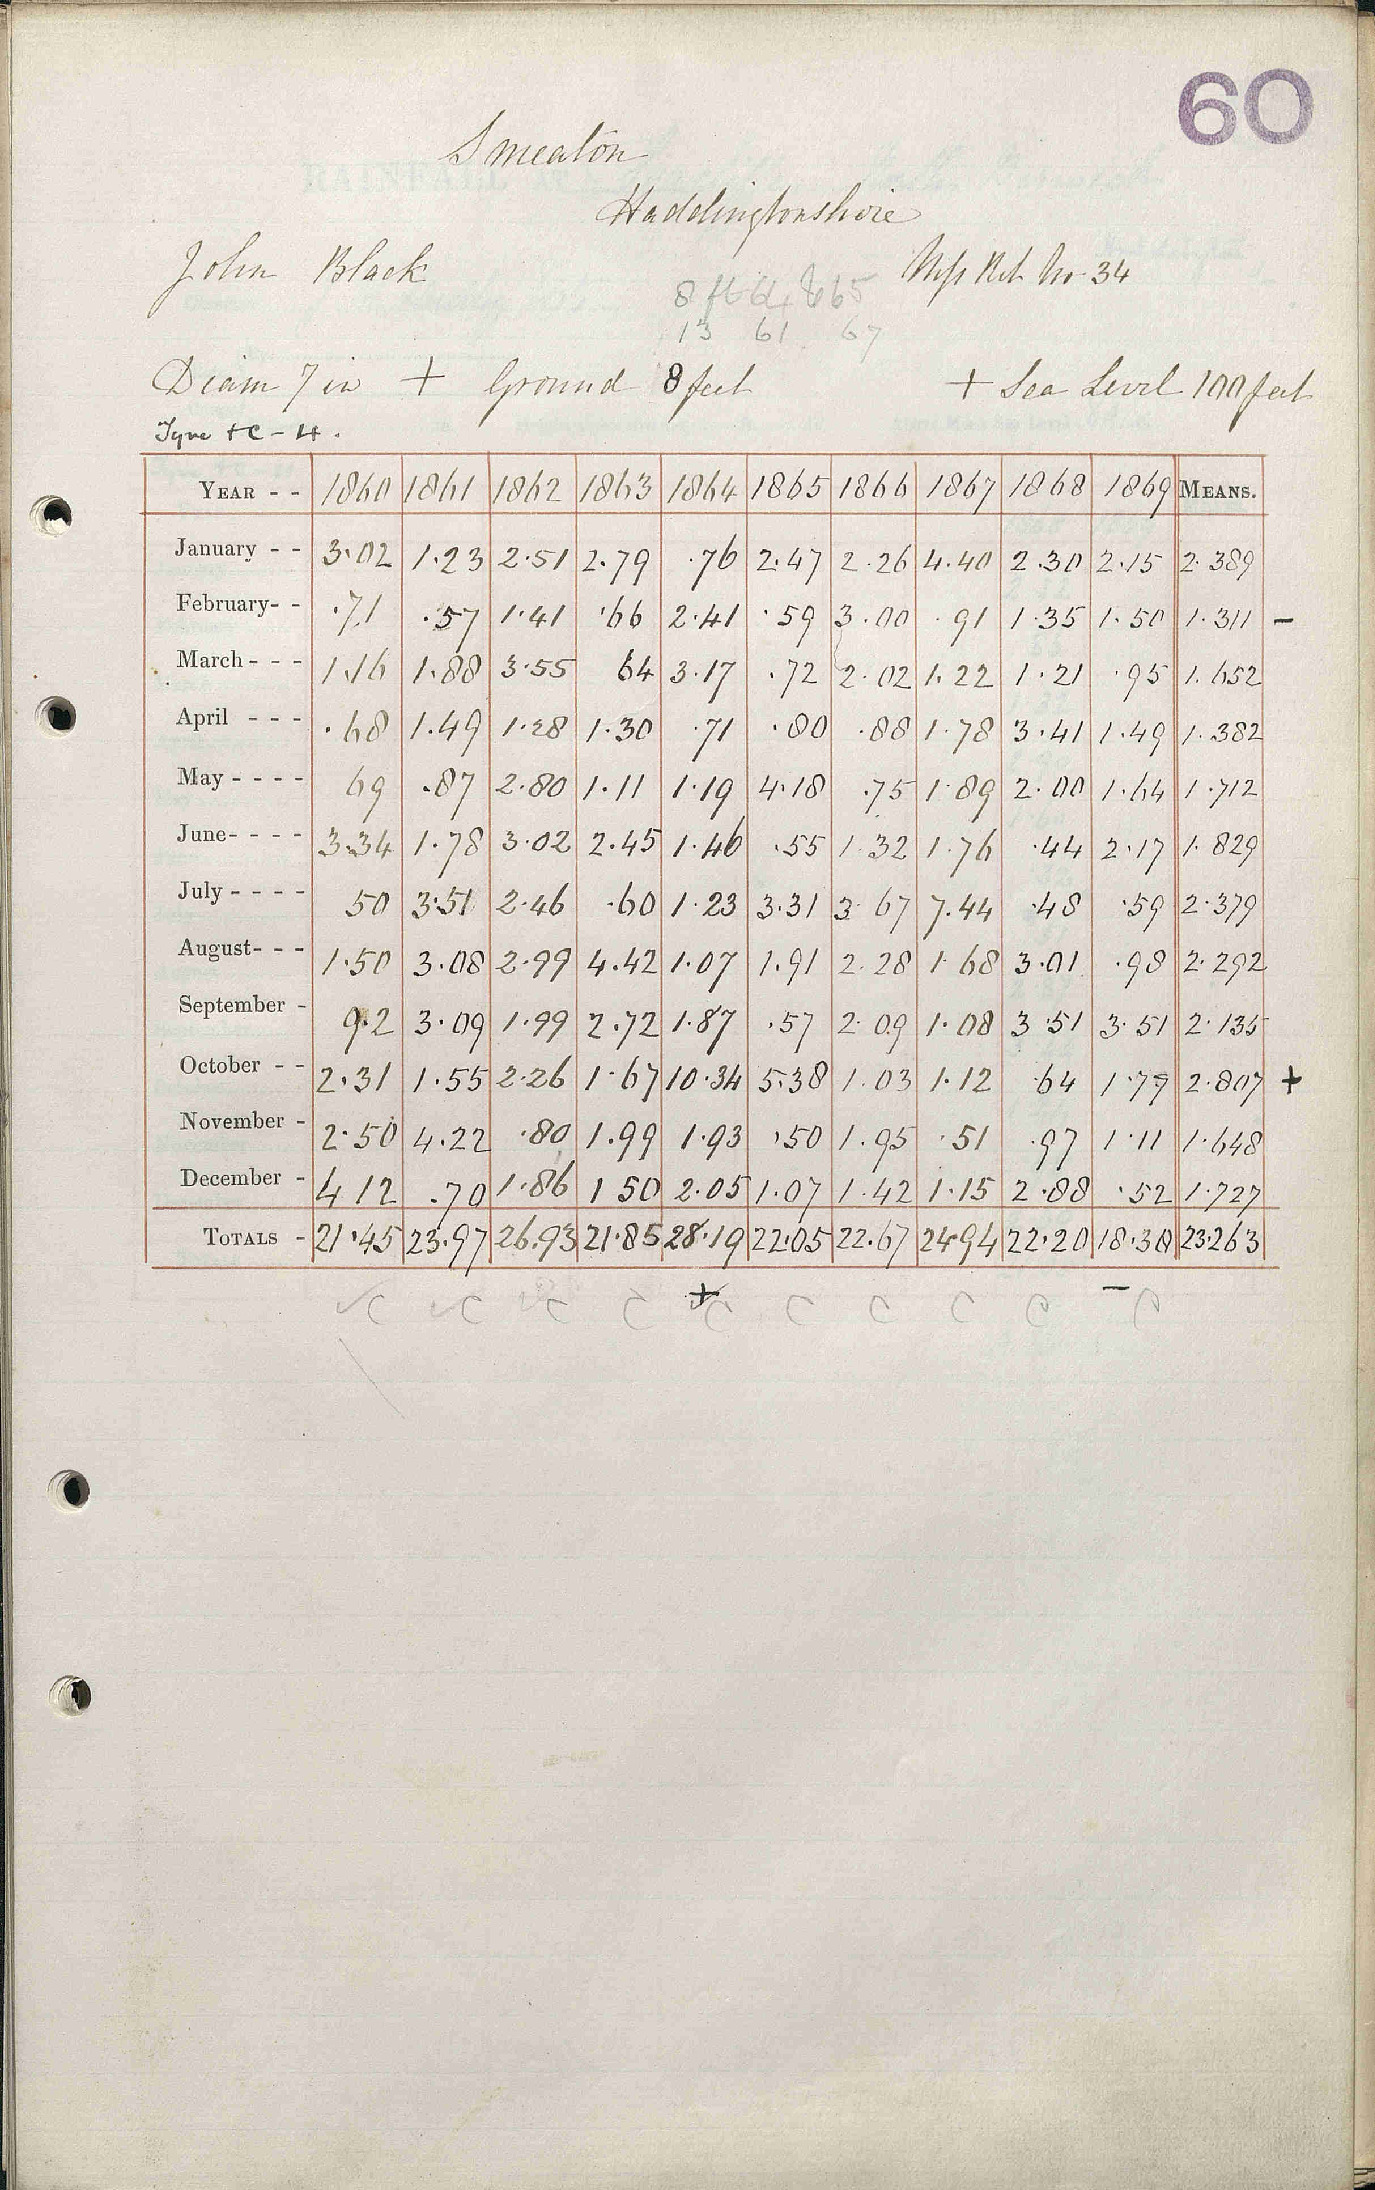 60
Smeaton
Haddingtonshire
John Black Mss Ret No 34
8 ft 64 & 65
13 61 67
Diam 7 in + Ground 8 feet + Sea Level 100 feet
Tyne + C - 4.
YEAR - - 1860 1861 1862 1863 1864 1865 1866 1867 1868 1869 MEANS.
January - - 3.02 1.23 2.51 2.79 .76 2.47 2.26 4.40 2.30 2.15 2.389
February- - .71 .57 1.41 .66 2.41 .59 3.00 .91 1.35 1.50 1.311 -
March - - - 1.16 1.88 3.55 64 3.17 .72 2.02 1.22 1.21 .95 1.652
April - - - .68 1.49 1.28 1.30 .71 .80 .88 1.78 3.41 1.49 1.382
May - - - - 69 .87 2.80 1.11 1.19 4.18 .75 1.89 2.00 1.64 1.712
June- - - - 3.34 1.78 3.02 2.45 1.46 .55 1.32 1.76 .44 2.17 1.829
July - - - - 50 3.51 2.46 .60 1.23 3.31 3.67 7.44 .48 .59 2.379
August- - - 1.50 3.08 2.99 4.42 1.07 1.91 2.28 1.68 3.01 .98 2.292
September - 9.2 3.09 1.99 2.72 1.87 .57 2.09 1.08 3.51 3.51 2.135
October - - 2.31 1.55 2.26 1.67 10.34 5.38 1.03 1.12 .64 1.77 2.807 +
November - 2.50 4.22 .80 1.99 1.93 .50 1.95 .51 .97 1.11 1.648
December - 4 12 .70 1.86 1 50 2.05 1.07 1.42 1.15 2.88 .52 1.727
TOTALS - 21.45 23.97 26.93 21.85 28.19 22.05 22.67 24.94 22.20 18.38 23.263
+ -
C C C C C C C C C C